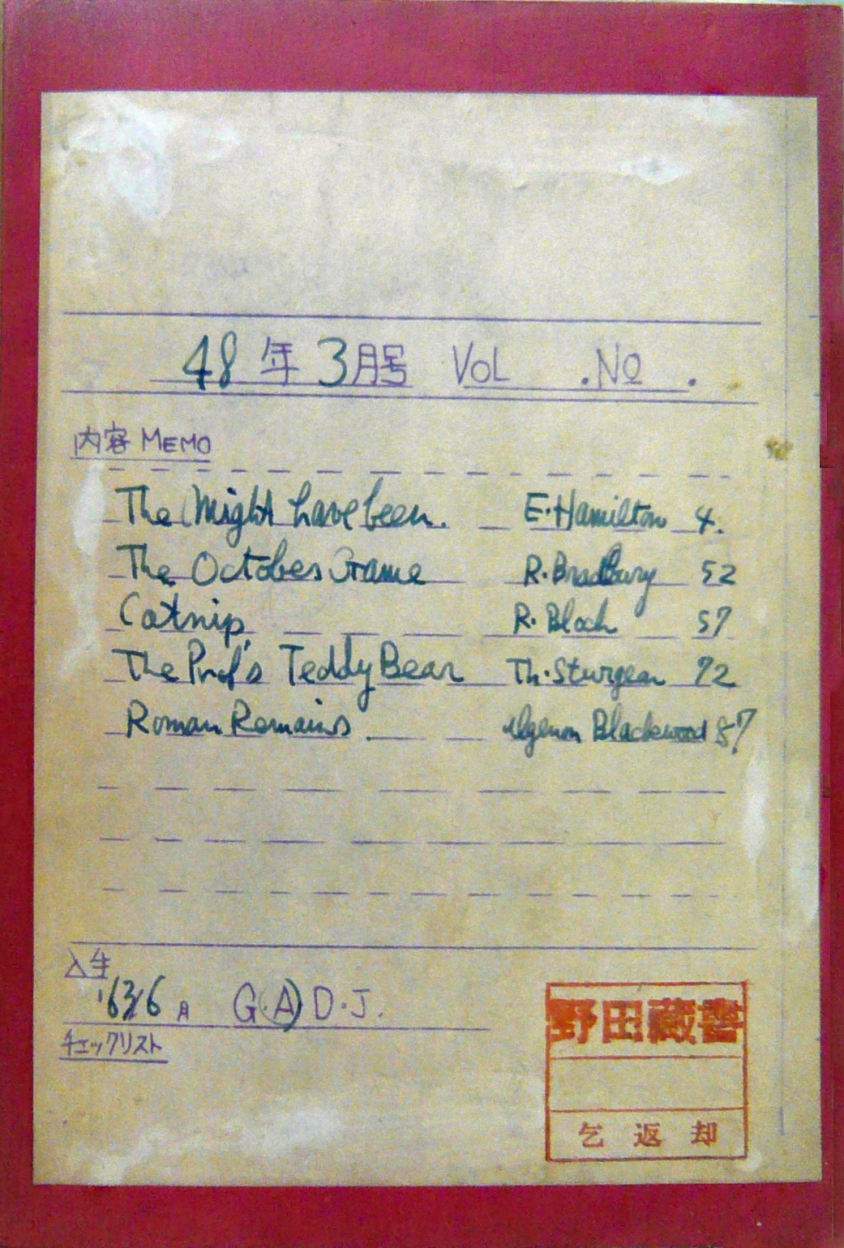 48年3月号 VOL .No .
内容 MEMO
The Might have been. E. Hamilton 4.
The October Game R. Bradbury 52
Catnip R. Bloch 57
The Prof's Teddy Bear Th. Sturgeon 72
Roman Remains Algernon Blackwood 87
入手
'63/6月 G.(A) D.J.
チェックリスト
野田蔵書
乞返却